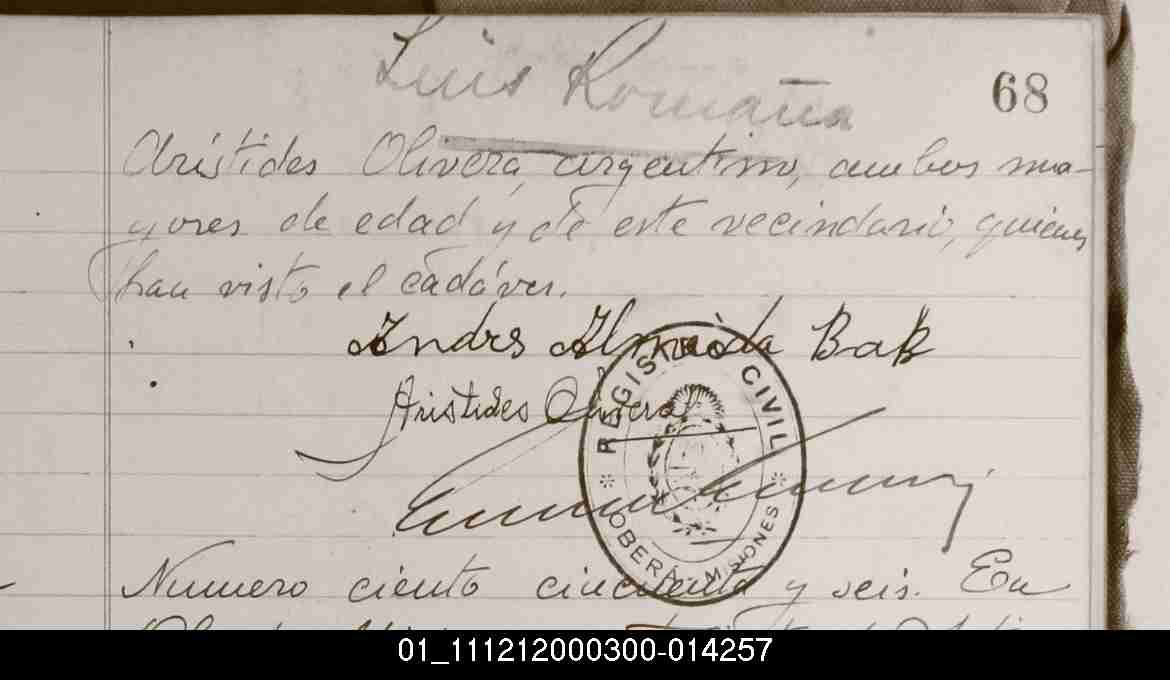 Luis Romaña
68
Arístides Olivera, argentino, ambos ma-
yores de edad y de este vecindario, quienes
han visto el cadáver.
Andrs Almida BaB
Aristides Olivera
REGISTRO CIVIL
OBERÁ - MISIONES
Numero ciento cincuenta y seis. En
01_111212000300-014257